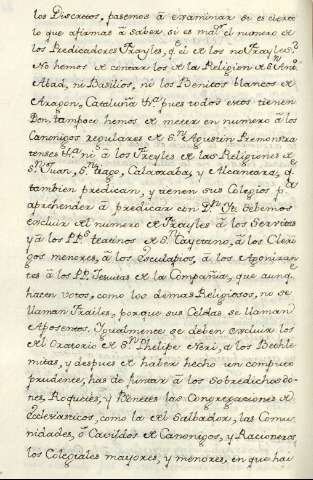 los Discretos, pasemos à examinar si es cierto
lo que afirman à saber si es maʳ el numero de
los Predicadores Frayles, q̃ el de los no Frayles?
No hemos de contar los de la Religion de Sⁿ Anᵒ
Abad, ni Basilios, ni los Benitos blancos de
Aragon, Cataluña &ᵃ pues todos estos tienen
Don, tampoco hemos de meter en numero à los
Canonigos reglares de Sⁿ Agustin Premonstra
tenses &ᵃ ni à los Freyles de las Religiones de
Sⁿ Juan, Sⁿtiago, Calatraba, y Alcantara, q̃
tambien predican, y tienen sus Colegios pᵃ
aprehender à predicar con Dⁿ &ᵃ debemos
excluir del numero de Frayles à los Servitas
y à los PPˢ teatinos de Sⁿ Cayetano, à los Cleri
gos menores, à los Esculapios, à los Agonizan
tes à los PP. Jesuitas de la Compañia, que aunq̃
hacen votos, como los demas Religiosos, no se
llaman Frailes, porque sus Celdas se llaman
Aposentos, Igualmente se deben excluir los
del Oratorio de Sⁿ Phelipe Neri, à los Bethle
mitas, y despues de haber hecho un computo
prudente, has de juntar à los Sobredichos do-
nes, Roquetes, y Bonetes las Congregaciones de
Eclesiasticos, como la del Salbador, las Comu
nidades, ò Cavildos de Canonigos, y Racioneros
los Colegiales mayores, y menores, en que hai